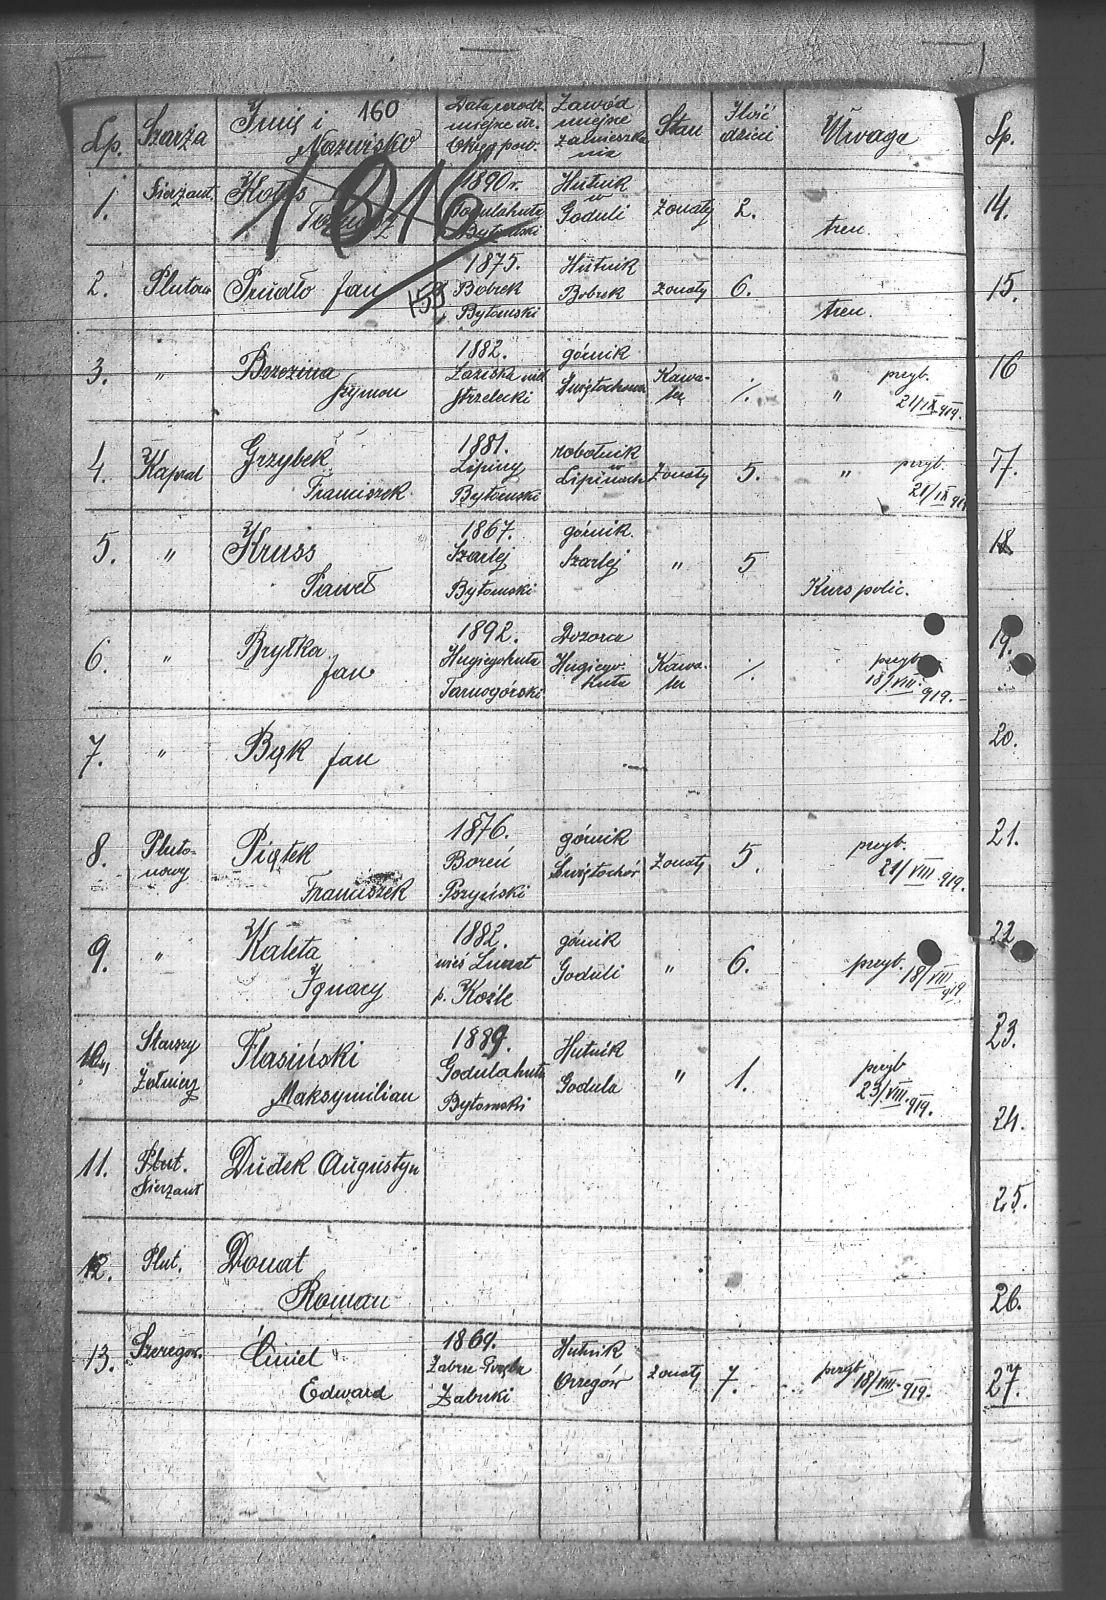 160
Lp. Szarża Imię i Nazwisko Data urodz. miejsce ur. Okręg pow. Zawód miejsce zamieszkania Stan Ilość dzieci Uwaga Lp.
1016
1. Sierżant. 1890 r. Godulahuta Bytomski Hutnik w Goduli żonaty 2. tren. 14.
2. Pluton. Prudło Jan 159 1875. Bobrek Bytomski Hutnik Bobrek żonaty 6. tren. 15.
3. " Brzezina Szymon 1882. Strzelecki górnik Świętochowa Kawaler /. " przyb. 21/IX 919. 16
4. Kapral Grzybek Franciszek 1881. Lipiny Bytomski robotnik w Lipinach żonaty 5. " przyb. 21/IX 919. 17.
5. " Kruss Paweł 1867. Szarlej Bytomski górnik. Szarlej " 5 Kurs polic. 18
6. " Bryłka Jan 1892. Hugiegohuta Tarnogórski Dozorca Hugiegohuta Kawaler /. przyb. 18/VIII. 919. 19.
7. " Bąk Jan 20.
8. Plutonowy Piątek Franciszek 1876. Boreń Pszyński górnik Świętochór żonaty 5. przyb. 21/VIII 919. 21.
9. " Kaleta Ignacy 1882. wieś p. Koźle górnik Goduli " 6. przyb. 18/VIII 919. 22
10. Starszy żołnierz Flasiński Maksymilian 1889. Godulahuta Bytomski Hutnik Godula " 1. przyb 23/VIII. 919. 23.
24.
11. Plut. Sierżant Dudek Augustyn 25.
12. Plut. Donat Roman 26.
13. Szeregow. Ćmiel Edward 1869. Zabrze Zabrski Hutnik Orzegów żonaty 7. przyb. 18/VIII. 919. 27.